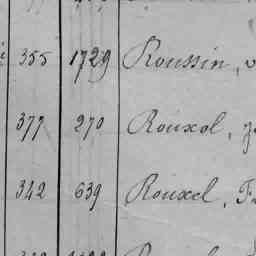 355 1729 Roussin,
377 270 Rouxol,
342 639 Rouxel,